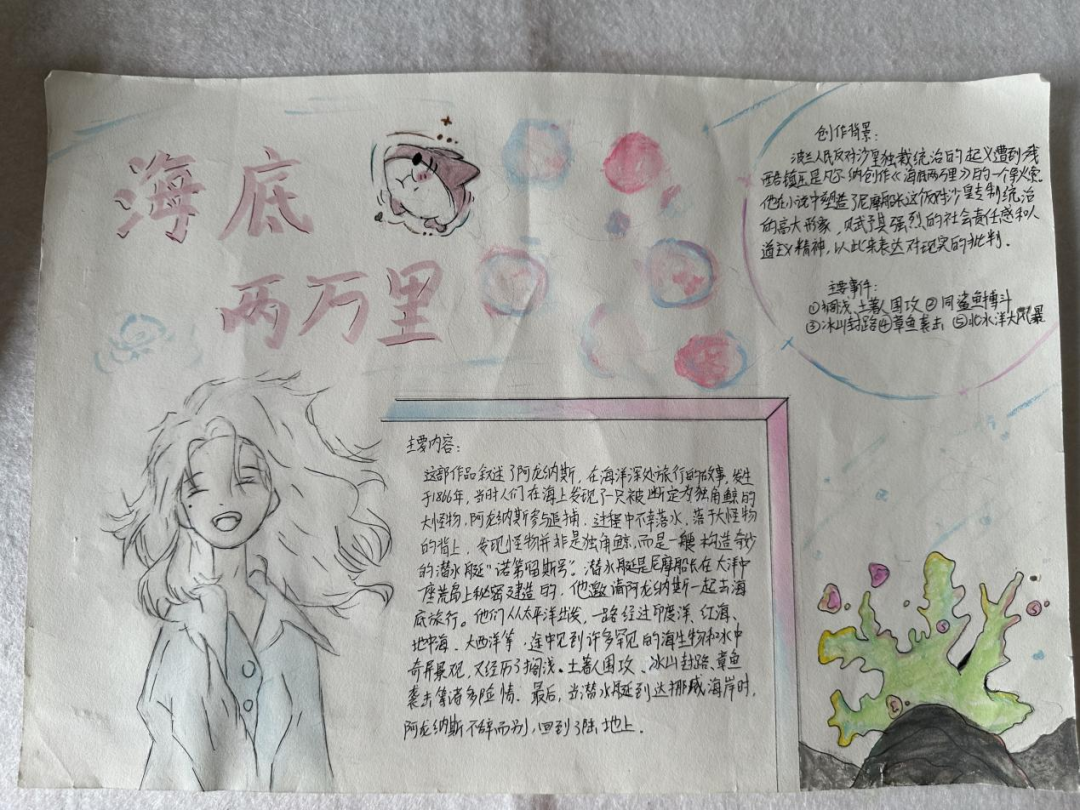 海底
两万里
创作背景：
波兰人民反对沙皇独裁统治的起义遭到残
酷镇压是凡尔纳创作《海底两万里》的一个导火索.
他在小说中塑造了尼摩船长这个反对沙皇专制统治
的高大形象，赋予其强烈的社会责任感和人
道主义精神，以此来表达对现实的批判．
主要事件：
①搁浅．土著人围攻 ②同鲨鱼搏斗
③冰山封路④章鱼袭击 ⑤北冰洋大风暴
主要内容：
这部作品叙述了阿龙纳斯，在海洋深处旅行的故事,发生
于1866年，当时人们在海上发现了一只被断定为独角鲸的
大怪物，阿龙纳斯参与追捕，过程中不幸落水，落于大怪物
的背上，发现怪物并非是独角鲸,而是一艘构造奇妙
的潜水艇“诺第留斯号”．潜水艇是尼摩船长在大洋中
座荒岛上秘密建造的，他邀请阿龙纳斯一起去海
底旅行。他们从太平洋出发，一路经过印度洋、红海、
地中海、大西洋等，途中见到许多罕见的海生物和水中
奇异景观，又经历了搁浅．土著人围攻、冰山封路、章鱼
袭击等诸多险情．最后，当潜水艇到达挪威海岸时，
阿龙纳斯不辞而别，回到了陆地上．